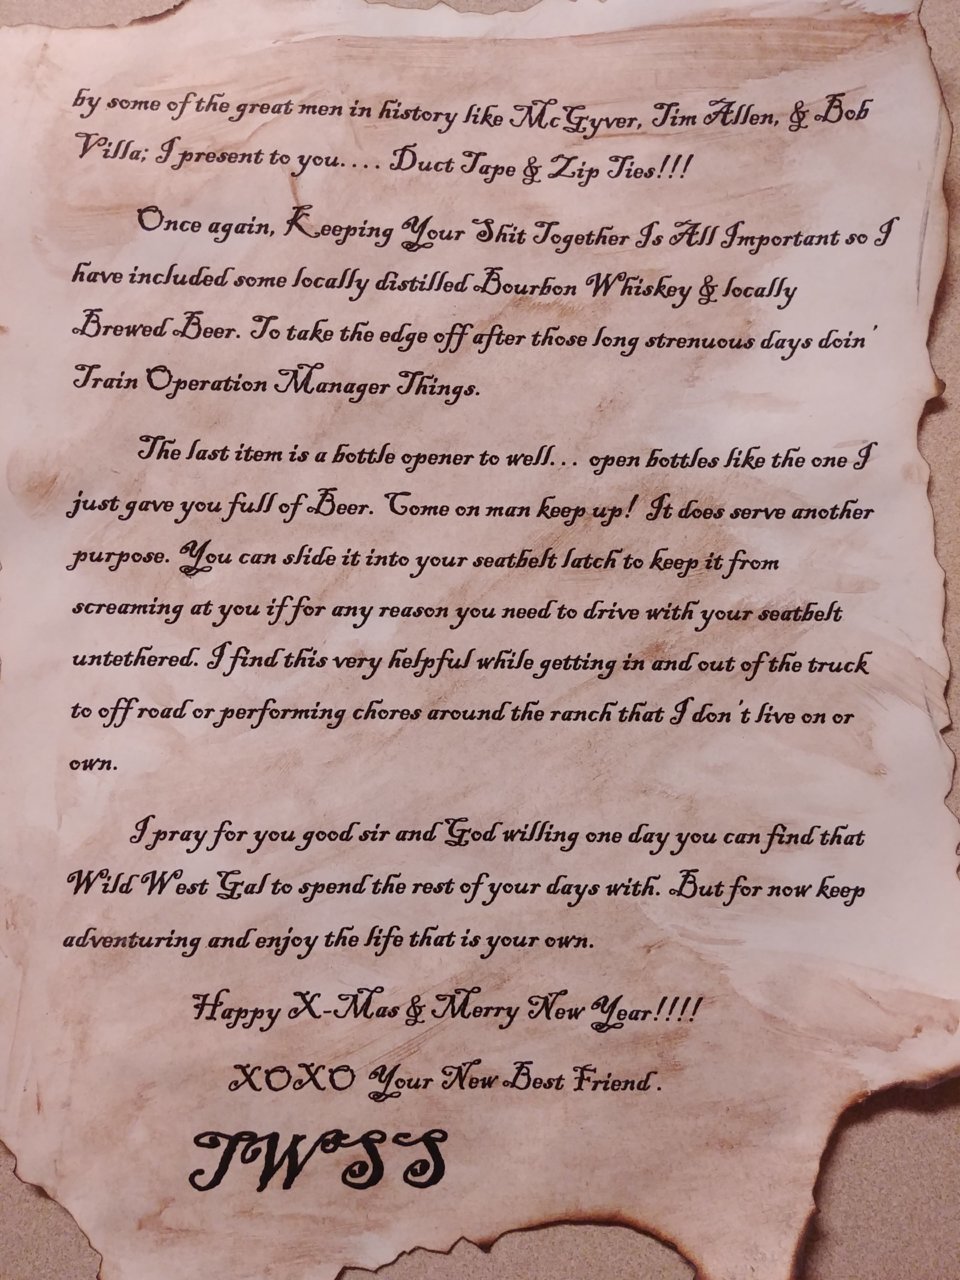 by some of the great men in history like McGyver, Tim Allen, & Bob
Villa; I present to you.... Duct Tape & Zip Ties!!!
Once again, Keeping Your Shit Together Is All Important so I
have included some locally distilled Bourbon Whiskey & locally
Brewed Beer. To take the edge off after those long strenuous days doin'
Train Operation Manager Things.
The last item is a bottle opener to well... open bottles like the one I
just gave you full of Beer. Come on man keep up! It does serve another
purpose. You can slide it into your seatbelt latch to keep it from
screaming at you if for any reason you need to drive with your seatbelt
untethered. I find this very helpful while getting in and out of the truck
to off road or performing chores around the ranch that I don't live on or
own.
I pray for you good sir and God willing one day you can find that
Wild West Gal to spend the rest of your days with. But for now keep
adventuring and enjoy the life that is your own.
Happy X-Mas & Merry New Year!!!!
XOXO Your New Best Friend.
TWSS